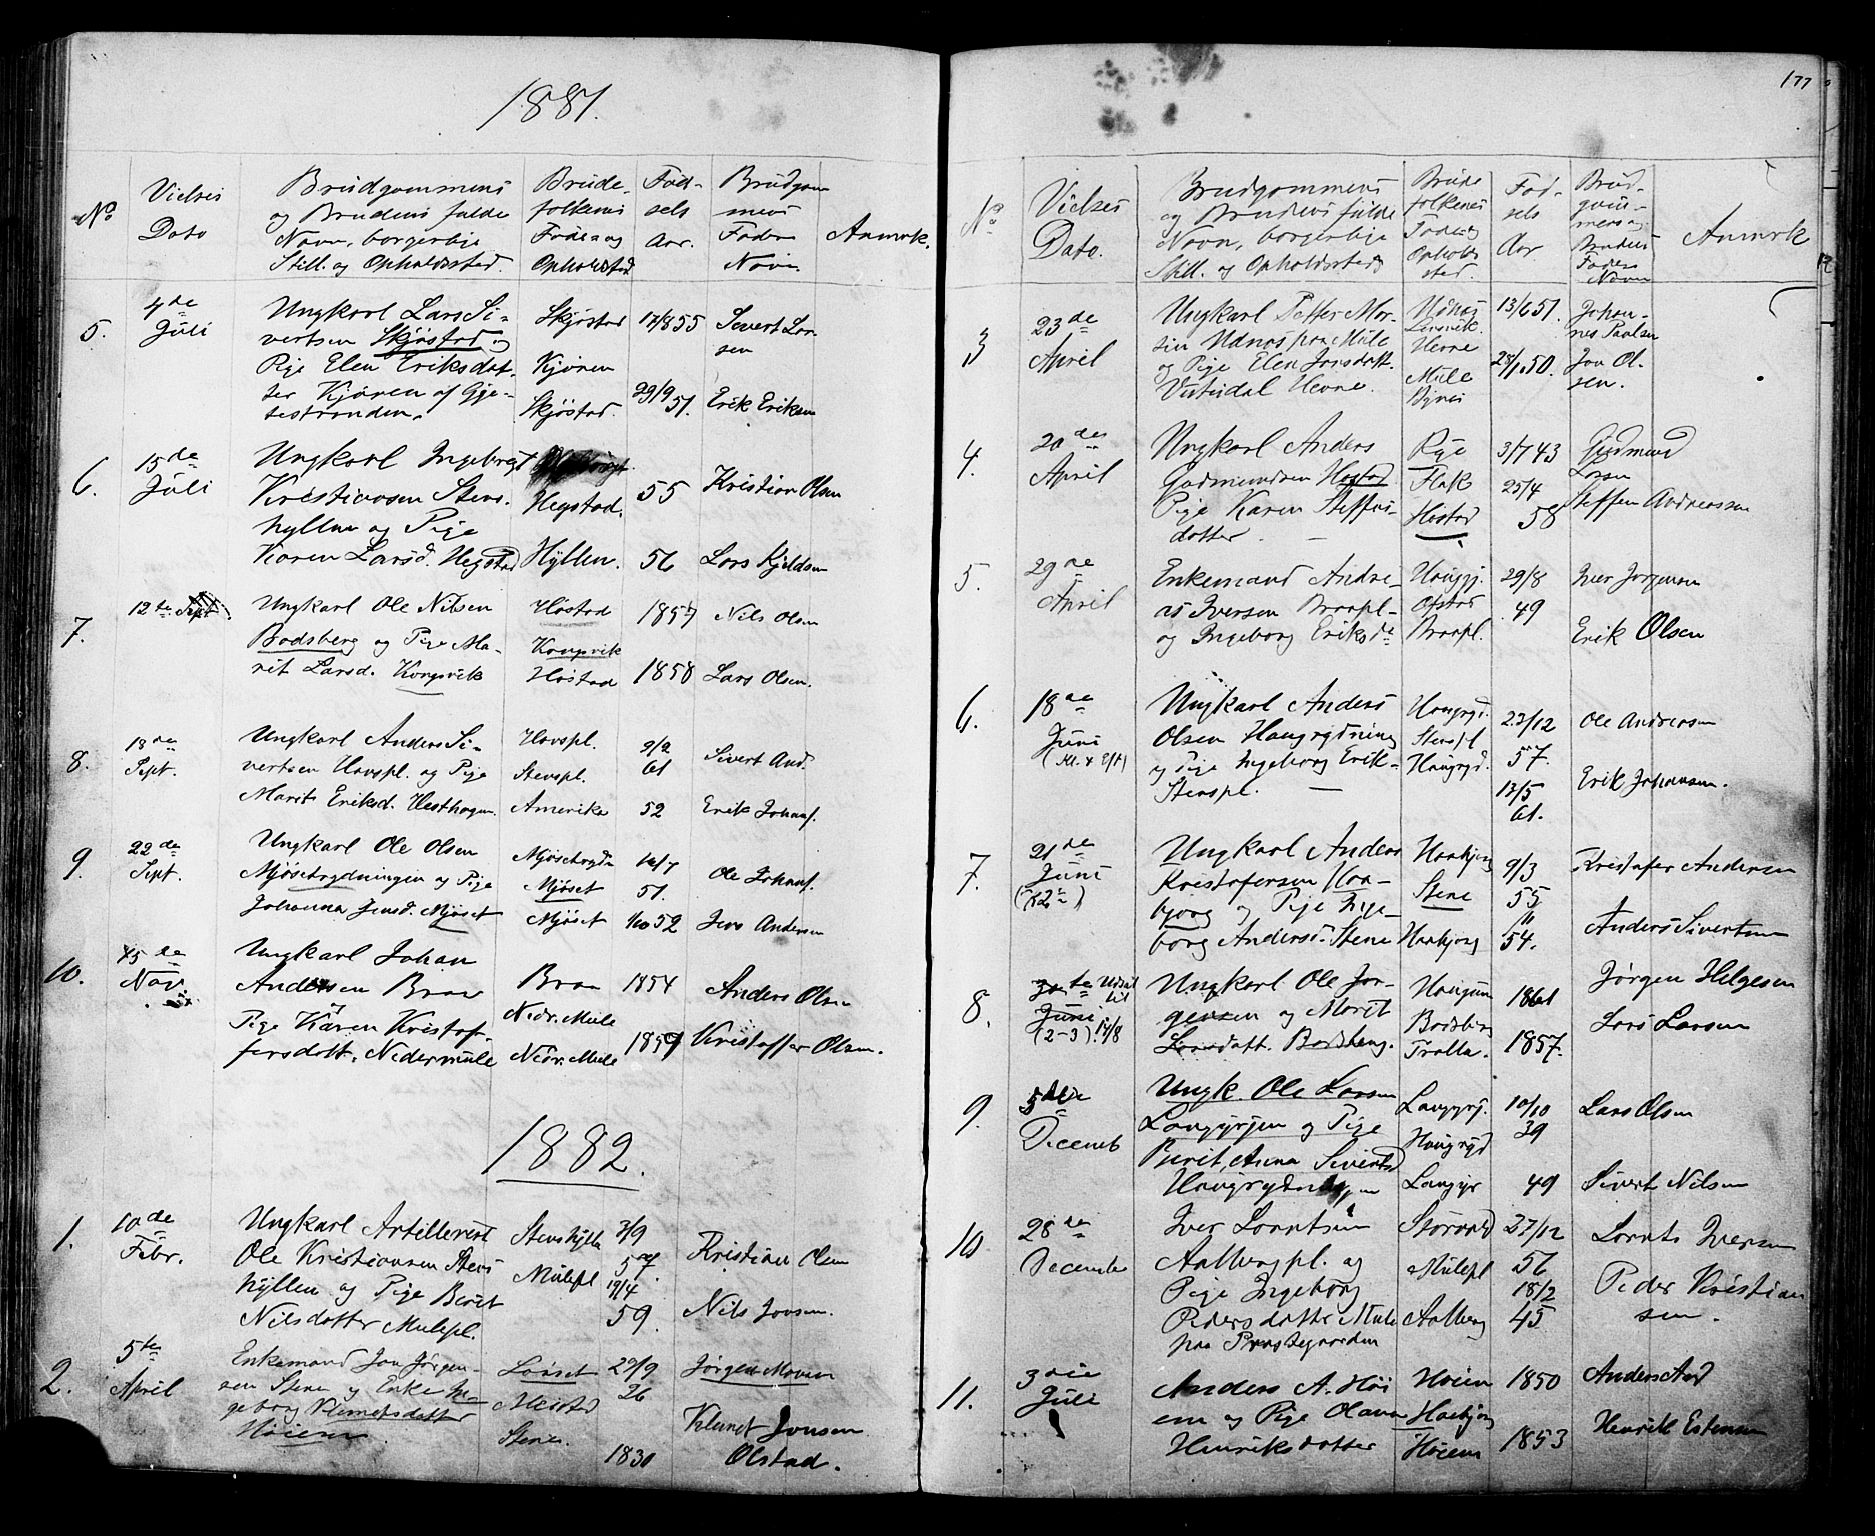 1881.
No
Vielses
Dato
Brudgommens
og Brudens fulde
Navn, borgerlige
Still. og Opholdssted.
Brude-
folkenes
Føde- og
Opholdssted
Fød-
sels
Aar.
Brudgom
mens
Fader
Navn
Anmrk.
5.
4de
Juli
Ungkarl Lars Si-
vertsen Skjøstad og
Pige Elen Eriksdat-
ter Kjøren af Gje-
testranden.
Skjøstad
Kjøren
Skjøstad.
17/8 55
29/9 51.
Sivert Lar-
sen
Erik Eriksen
6.
15de
Juli
Ungkarl Ingebrigt
Kristiansen Stens-
hyllen og Pige
Karen Larsd. Hegstad
Hegstad.
Hyllen.
55
56
Kristian Olsen
Lars Kjeldsen
7.
12te Sept.
Ungkarl Ole Nilsen
Bodsberg og Pige Ma-
rit Larsd. Kongsvik
Høstad
Kongsvik
Høstad
1857
1858
Nils Olsen
Lars Olsen.
8.
18de
Sept.
Ungkarl Anders Si-
vertsen Hovspl. og Pige
Marit Eriksd. Hesthagen.
Hovspl.
Stenspl.
Amerika
9/2
61
52
Sivert And.
Erik Johans.
9.
22de
Sept.
Ungkarl Ole Olsen
Mjøsetrydningen og Pige
Johanna Jensd. Mjøset
Mjøsetrydn
Mjøset
Mjøset
16/7
51.
52
Ole Johans.
Jens Andersen
10.
15de
Nov.
Ungkarl Johan
Andersen Braa
Pige Karen Kristof-
fersdatt. Nedermule
Braa
Nedr. Mule
Nedr. Mule
1854
1859
Anders Olsen
Kristoffer Olsen.
1882.
1.
10de
Febr.
Ungkarl Artillerist
Ole Kristiansen Stens
hyllen og Pige Berit
Nilsdatter Mulepl.
Stenshylla
Mulepl
3/9
57.
19/4
59.
Kristian Olsen
Nils Jonsen.
2.
5te
April
Enkemand Jon Jørgen-
sen Stene og Enke In-
geborg Klemetsdatter
Høiem
Lorset
Stene.
29/9
26
1830
Jørgen
Klemet Jonsen
Olstad.
177
No
Vielses
Dato.
Brudgommens
og Brudens fulde
Navn, borgerlige
Still. og Opholdssted
Brude
folkenes
Føde og
Opholds
sted.
Fød-
sels
Aar
Brud-
gom-
mens og
Brudens
Faders
Navn
Anmrk
3
23de
April
Ungkarl Petter Mor-
sin Udnøs paa Mule
og Pige Elen Jonsdatt.
Hevne.
Udnøs
Hevne
Mule
Bynes
13/6 51.
50.
Johan-
nes Paalsen
Jon Ol-
sen.
4.
20de
April
Ungkarl Anders
Gudmundsen Høstad
Pige Karen Steffens-
datter
Rye
Flak
Høstad
3/7 43
25/4
58
Gudmund
Steffen Andreassen
5.
29de
April
Enkemand Andre-
as Iversen Braapl-
og Ingeborg Eriksd.
Ofstad
Braapl.
29/8
49
Iver Jørgensen
Erik Olsen
6.
18de
Juni
Ungkarl Anders
Olsen Haugrydning
og Pige Ingeborg Erik-
Stenspl.
Haugryd.
Stenspl
Haugryd.
23/12
57.
13/5
61.
Ole Andersen
Erik Johansen.
7.
21de
Juni
Ungkarl Anders
Kristofersen Haa-
bjørg og Pige Inge-
borg Andersd. Stene
Haabjørg
Stene
Haabjørg
9/3
55
54.
Kristofer Andersen
Anders Sivertsen
8.
Juni
(2-3) 17/8
Ungkarl Ole Jør-
gensen og Marit
Larsdatt. Bodsberg.
Bodsberg
Trolla.
1861
1857.
Jørgen Helgesen
Lars Larsen
9.
5te
Decemb
Ungk. Ole Larsen
Langørgen og Pige
Berit Anna Sivertsd
Haugrydningen
Langørj.
Haugryd
Langør
10/10
39
49
Lars Olsen
Sivert Nilsen
10
28de
December
Iver Lorntsen
Aalbergpl. og
Pige Ingeborg
Pedersdatter Mule
paa Prestegaarden
Mulepl
Aalberg
27/12
56
18/2
45
Lornts Iversen
Peder Kristian
sen.
11.
3die
Juli
Anders A. Høi
em og Pige Olava
Henriksdatter
Høiem
Haabjørg
Høiem
1850
1853
Anders And
Henrik Estensen